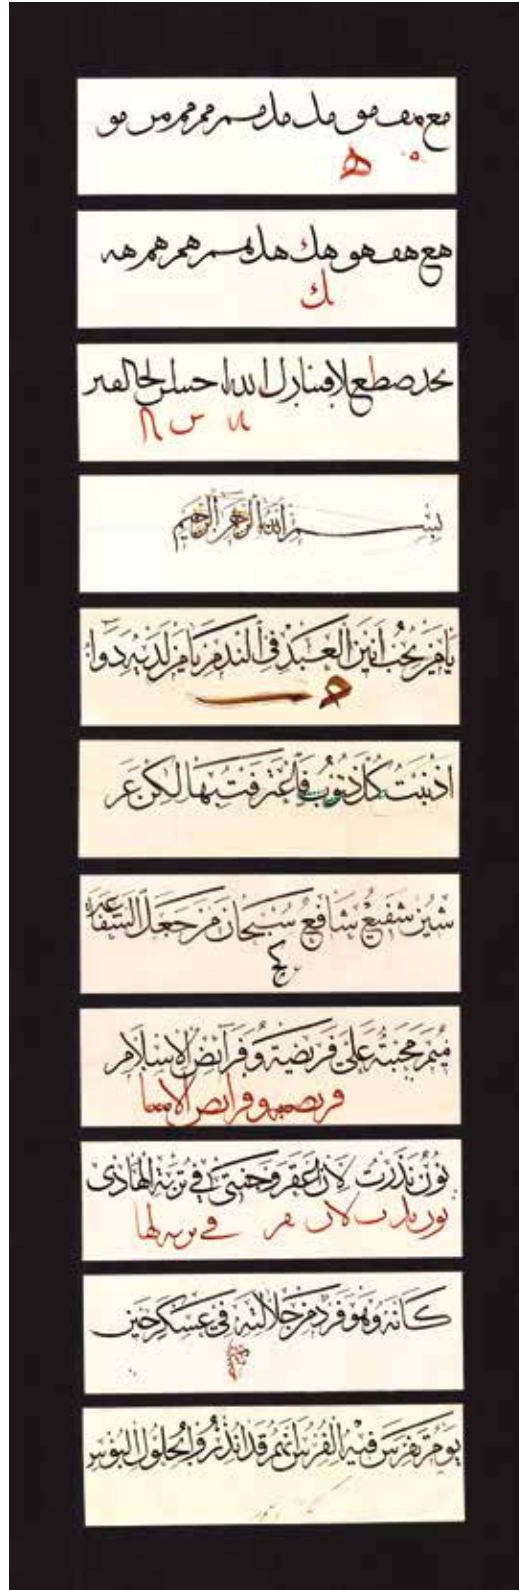 مع مف مو مك مل مسر ممر ممر من مو
ه ه
هع هف هو هك هل هسر همر همر هه
ك
بسم الله الرحمن الرحيم
يَا مَن يحب انين العبد في الندم يا من لديه دواء
اذنبت كل ذنوب فاعترفت بها لكن عر
شين شفيع شافع سبحان من جعل الشفاعة
ميم محبته على فريضة وفرائض الإسلام
فريضه وفرائض الا
نون نذرت لان اعفر وجنتي في تربة الهادي
نون لان في تربه لها
كأنه وهو فرد من جلالته في عسكر حين
يوم تفرس فيه الفرس انهم قد انذروا بحلول البؤس